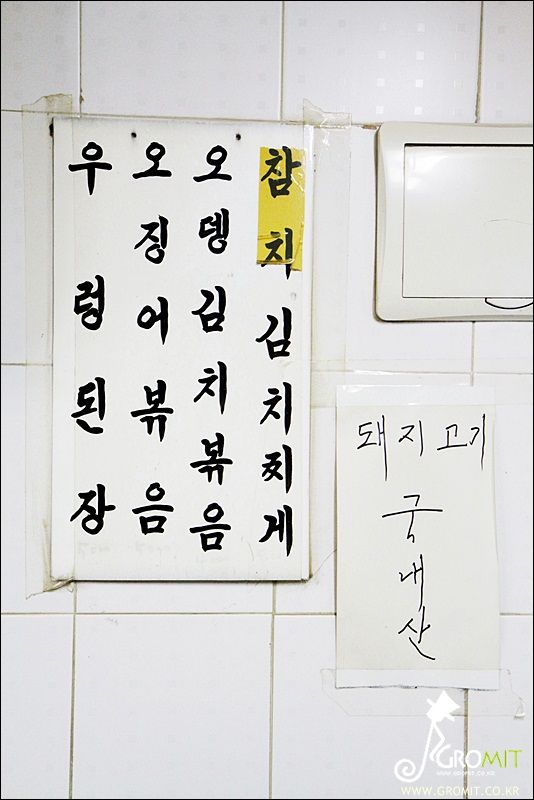 참치김치찌게
오뎅김치볶음
오징어볶음
우렁된장
돼지고기
국내산
GROMIT
WWW.GROMIT.CO.KR
WWW.GROMIT.CO.KR